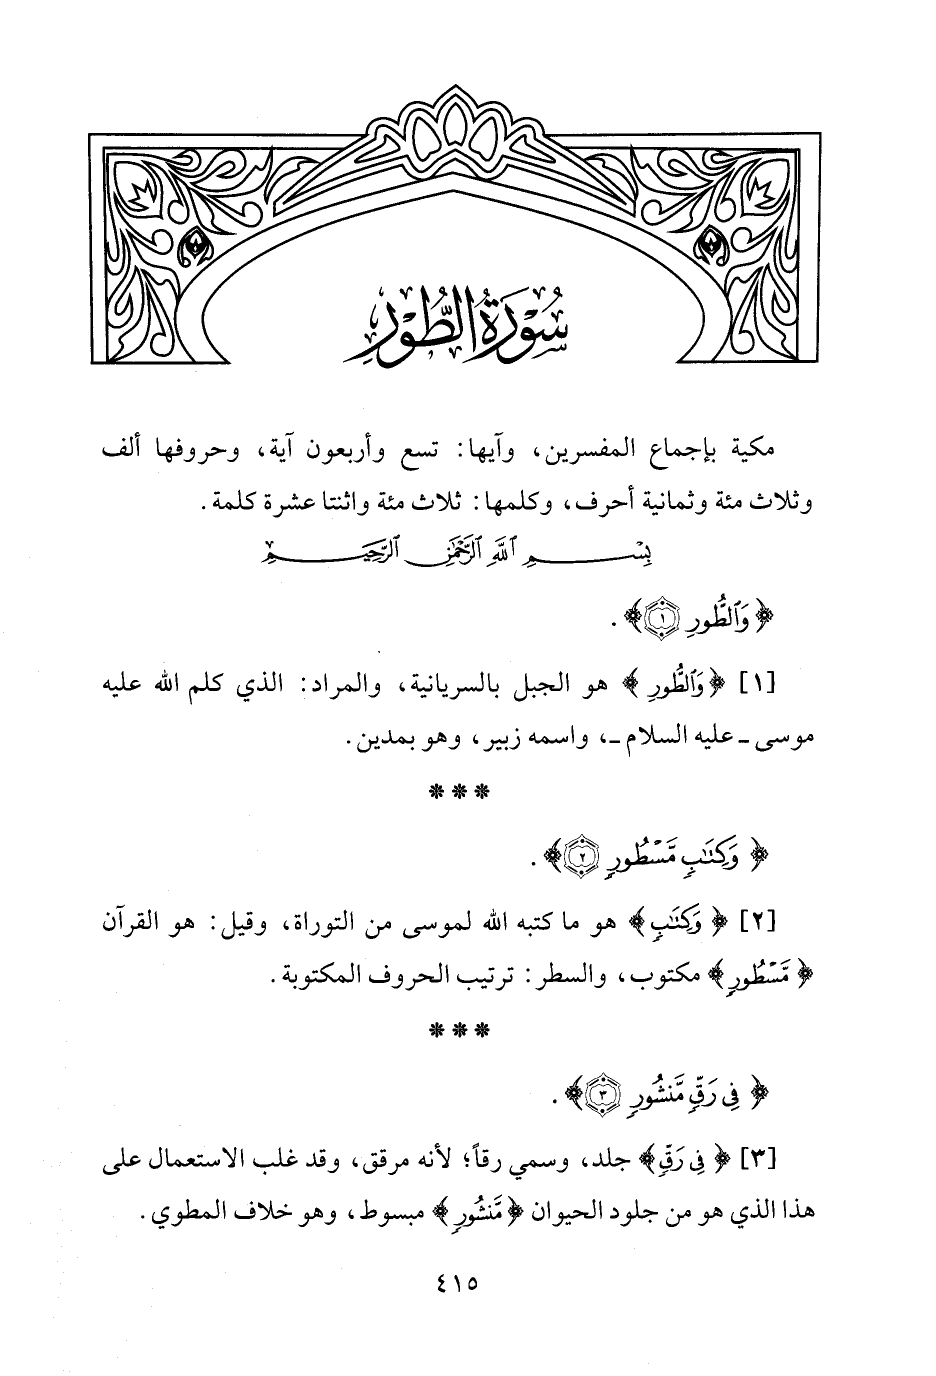 سُوْرَةُ الطُّوْرِ
مكية بإجماع المفسرين، وآيها: تسع وأربعون آية، وحروفها ألف
وثلاث مئة وثمانية أحرف، وكلمها: ثلاث مئة واثنتا عشرة كلمة.
بِسْمِ ٱللَّهِ ٱلرَّحْمَٰنِ ٱلرَّحِيمِ
﴿وَٱلطُّورِ ١﴾.
[١] ﴿وَٱلطُّورِ﴾ هو الجبل بالسريانية، والمراد: الذي كلم الله عليه
موسى ـ عليه السلام ـ، واسمه زبير، وهو بمدين.
* * *
﴿وَكِتَٰبٍ مَّسْطُورٍ ٢﴾.
[٢] ﴿وَكِتَٰبٍ﴾ هو ما كتبه الله لموسى من التوراة، وقيل: هو القرآن
﴿مَّسْطُورٍ﴾ مكتوب، والسطر: ترتيب الحروف المكتوبة.
* * *
﴿فِى رَقٍّ مَّنشُورٍ ٣﴾.
[٣] ﴿فِى رَقٍّ﴾ جلد، وسمي رقاً؛ لأنه مرقق، وقد غلب الاستعمال على
هذا الذي هو من جلود الحيوان ﴿مَّنشُورٍ﴾ مبسوط، وهو خلاف المطوي.
٤١٥